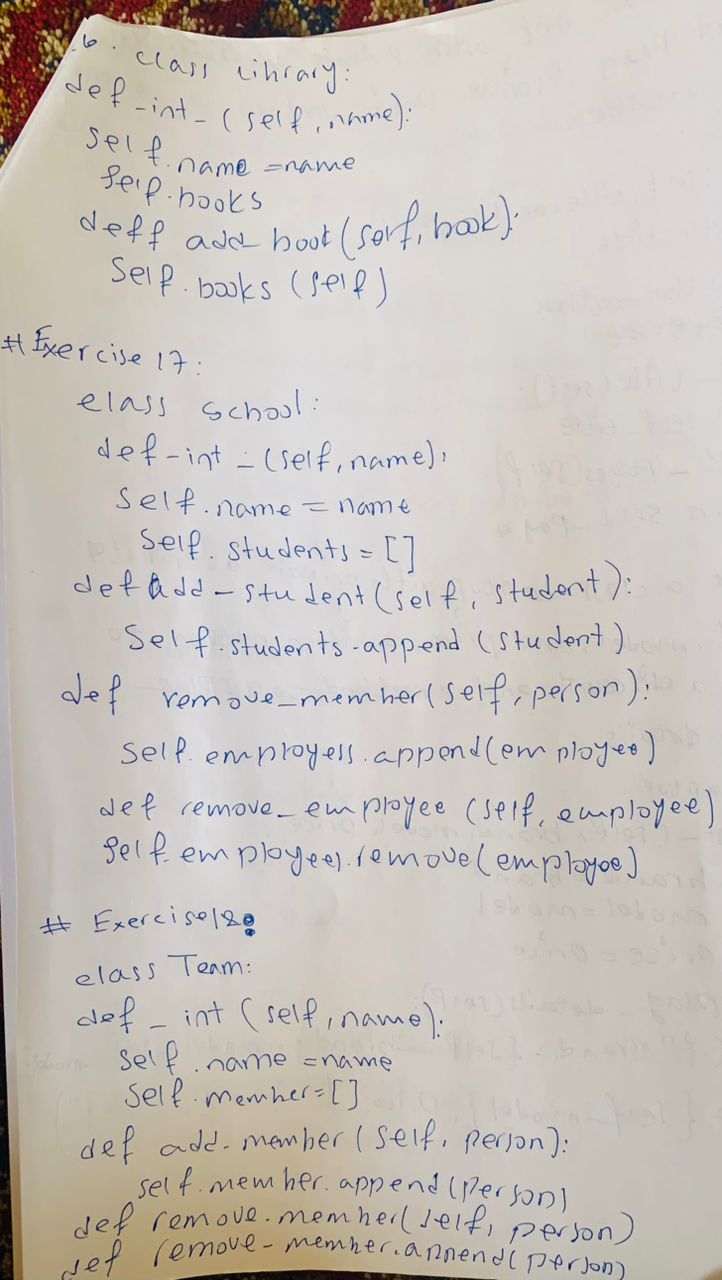 6. class Library:
def _int_ (self, name):
self.name = name
self.books
deff add_boot (self, book):
self.books (self)
# Exercise 17:
class school:
def _int _ (self, name):
self.name = name
self.students = []
def add_student (self, student):
self.students.append (student)
def remove_member (self, person):
self.employess.append(employee)
def remove_employee (self, employee)
self.employees.remove(employee)
# Exercise 18:
class Team:
def _ int (self, name):
self.name = name
self.member = []
def add_member (self, person):
self.member.append (person)
def remove.member(self, person)
def remove_member.append(person)